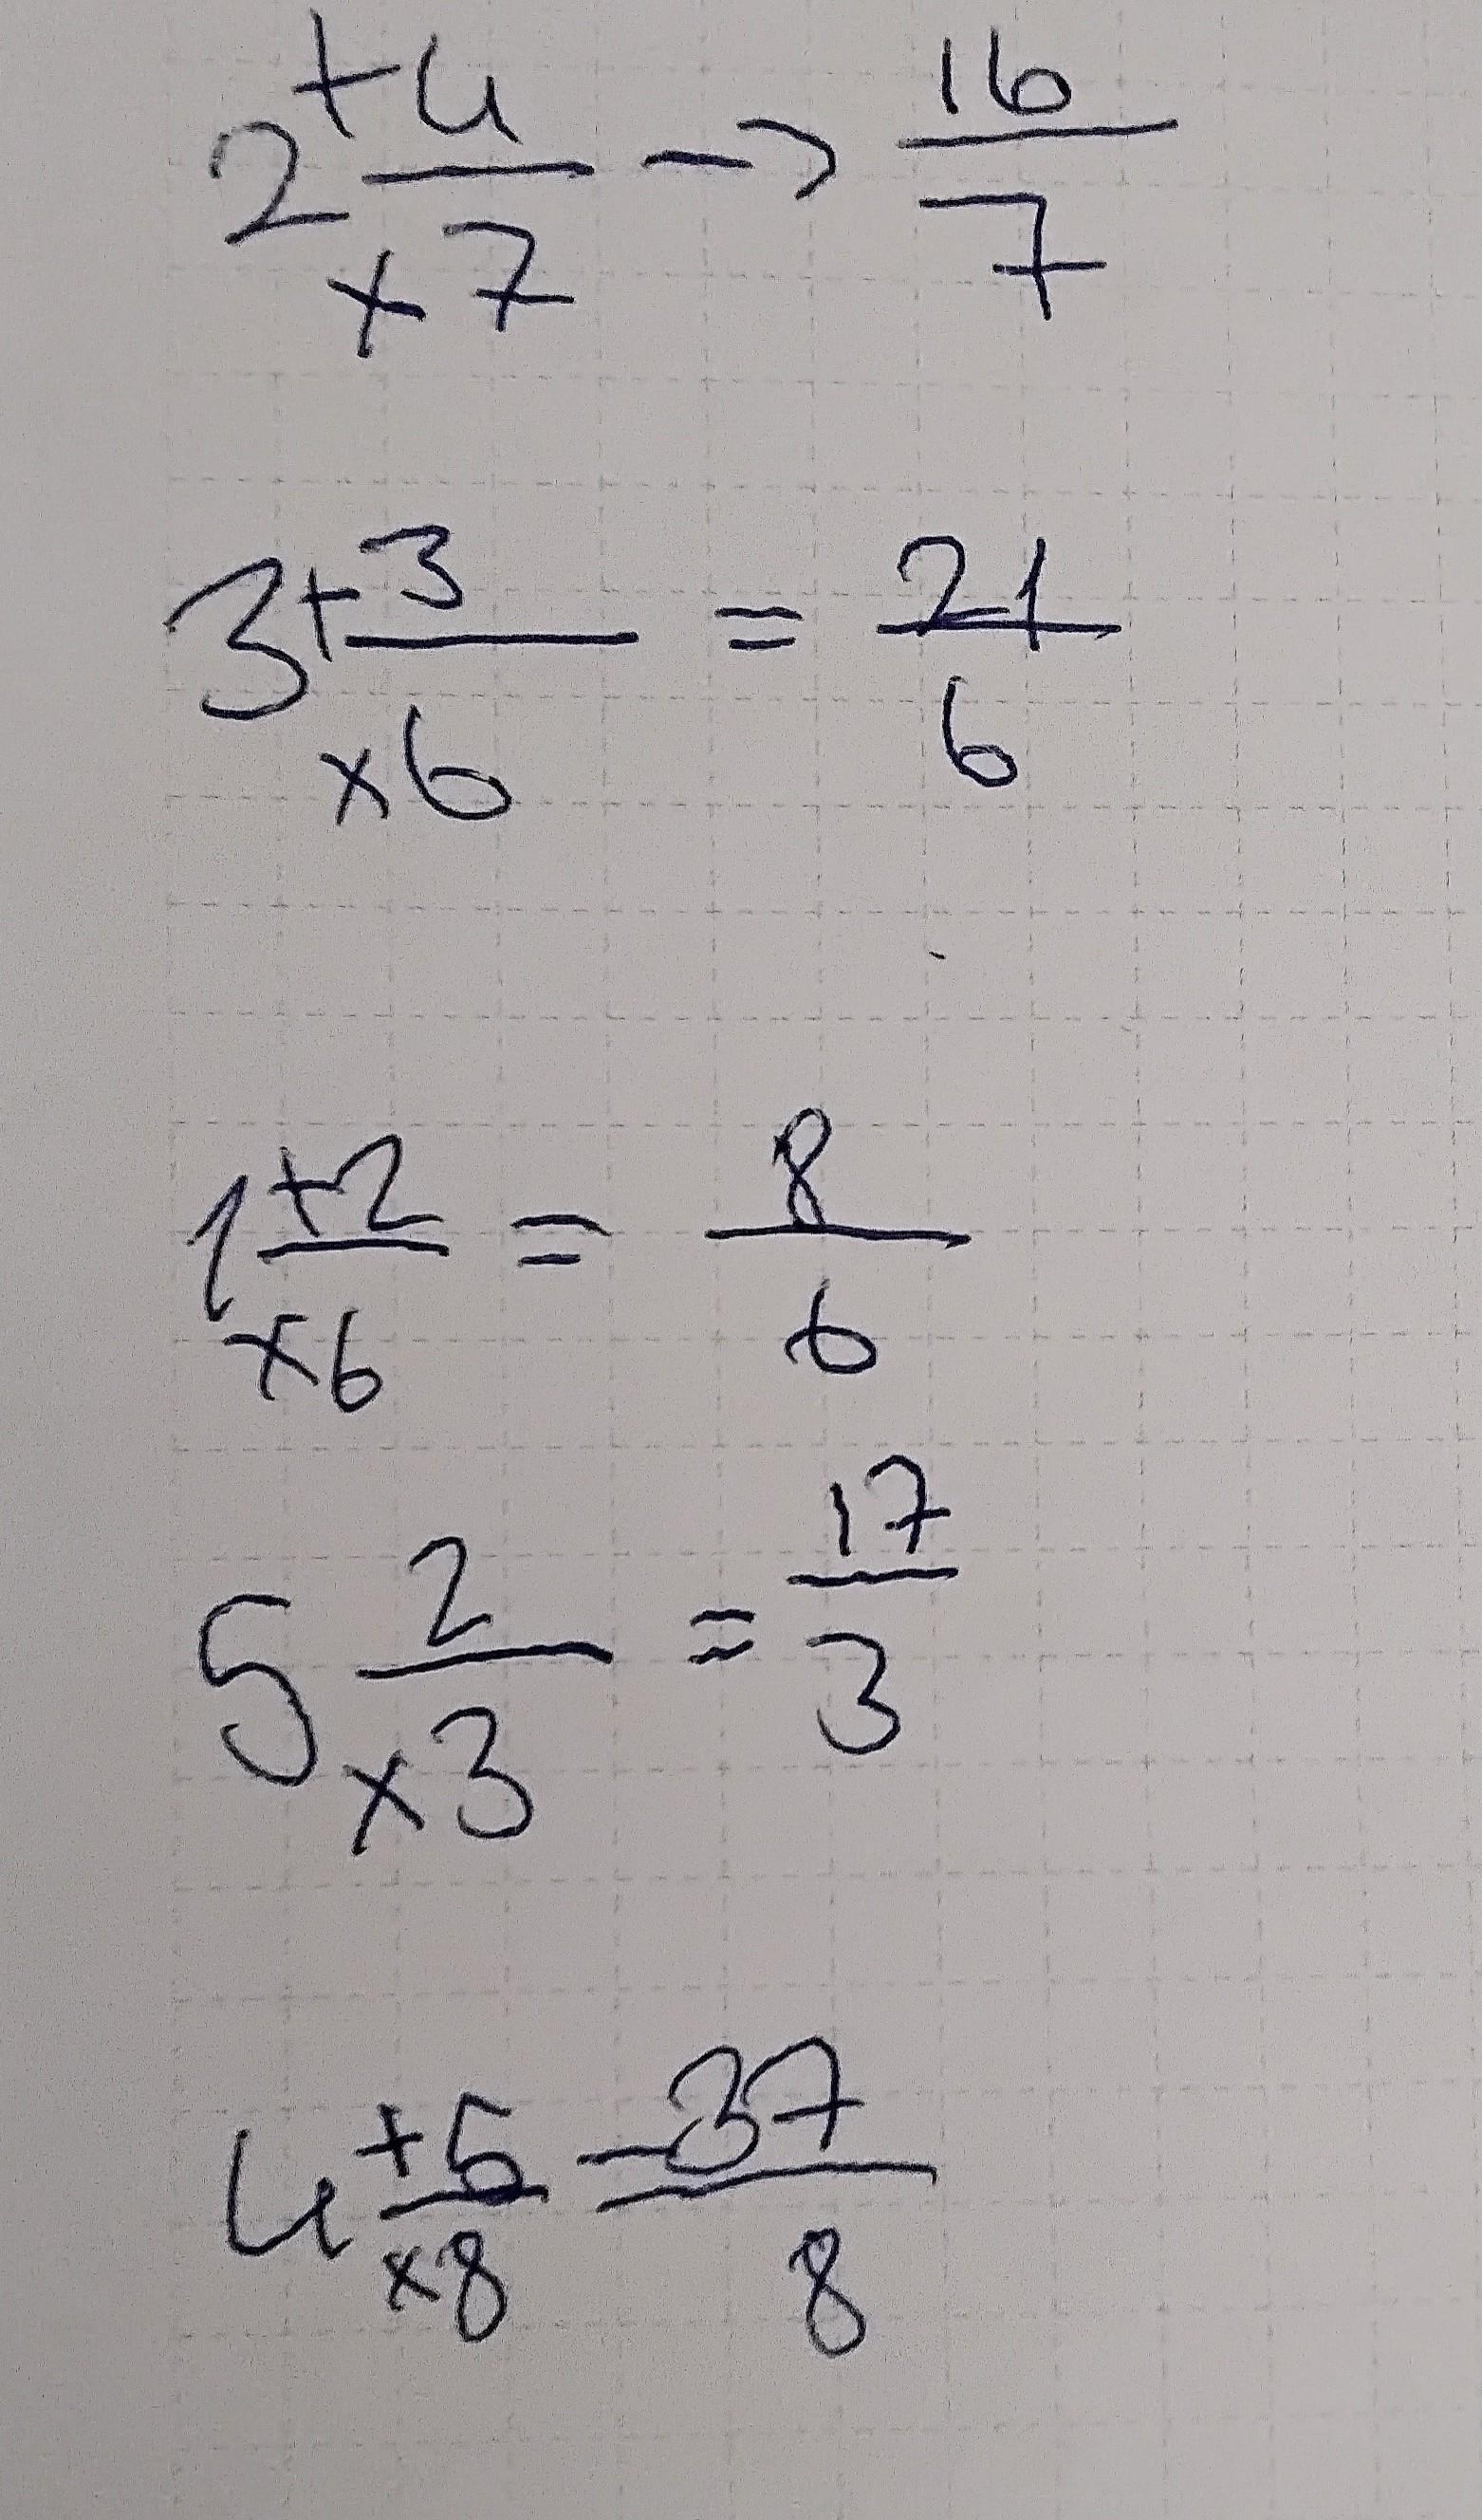 2 +4/×7 → 16/7
3 +3/×6 = 21/6
1 +2/×6 = 8/6
5 2/×3 = 17/3
4 +5/×8 = 37/8